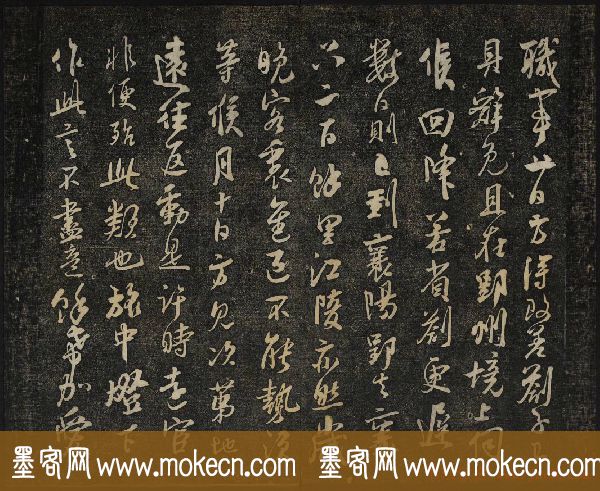 職事廿日方得改差劄子
具辭免且在郢州境上伺
候回降若省劄更遲
數日則已到襄陽郢去襄
只二百餘里江陵亦然歲
晚客裏不能勢須
等候月十日方見次第地
遠往返動是許時遠宦
非便殆此類也旅中燈下
作此言不盡意餘希加愛
墨客网 www.mokecn.com 墨客网 www.mokecn.com